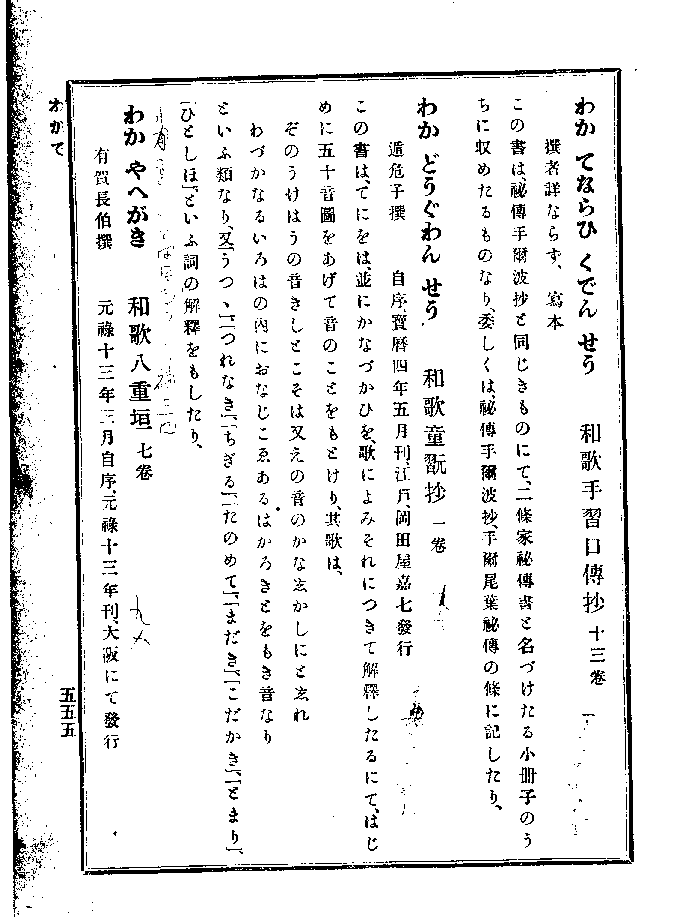 わか てならひ くでん せう　和歌手習口傳抄 十三卷
撰者詳ならず、寫本
この書は、祕傳手爾波抄と同じきものにて、二條家祕傳書と名づけたる小册子のう
ちに收めたるものなり、委しくは、祕傳手爾波抄、手爾尾葉祕傳の條に記したり、
わか どうぐわん せう　和歌童翫抄 一卷
遁危子撰　自序寶曆四年五月刊、江戸、岡田屋嘉七發行
この書は、てにをは、並にかなづかひを、歌によみそれにつきて解釋したるにて、はじ
めに五十音圖をあげて音のことをもとけり、其歌は、
ぞのうけはうの音きしとこそは又えの音のかな𛁈かしにと𛁈れ
わづかなるいろはの內におなじこゑあるはかろきとをもき音なり
といふ類なり、又「うつゝ」「つれなき」「ちぎる」「たのめて」「まだき」「こだかき」「とまり」、
「ひとしほ」といふ詞の解釋をもしたり、
わか やへがき　和歌八重垣 七卷
有賀長伯撰　元祿十三年三月自序、元祿十三年刊、大阪にて發行
わかて
五五五